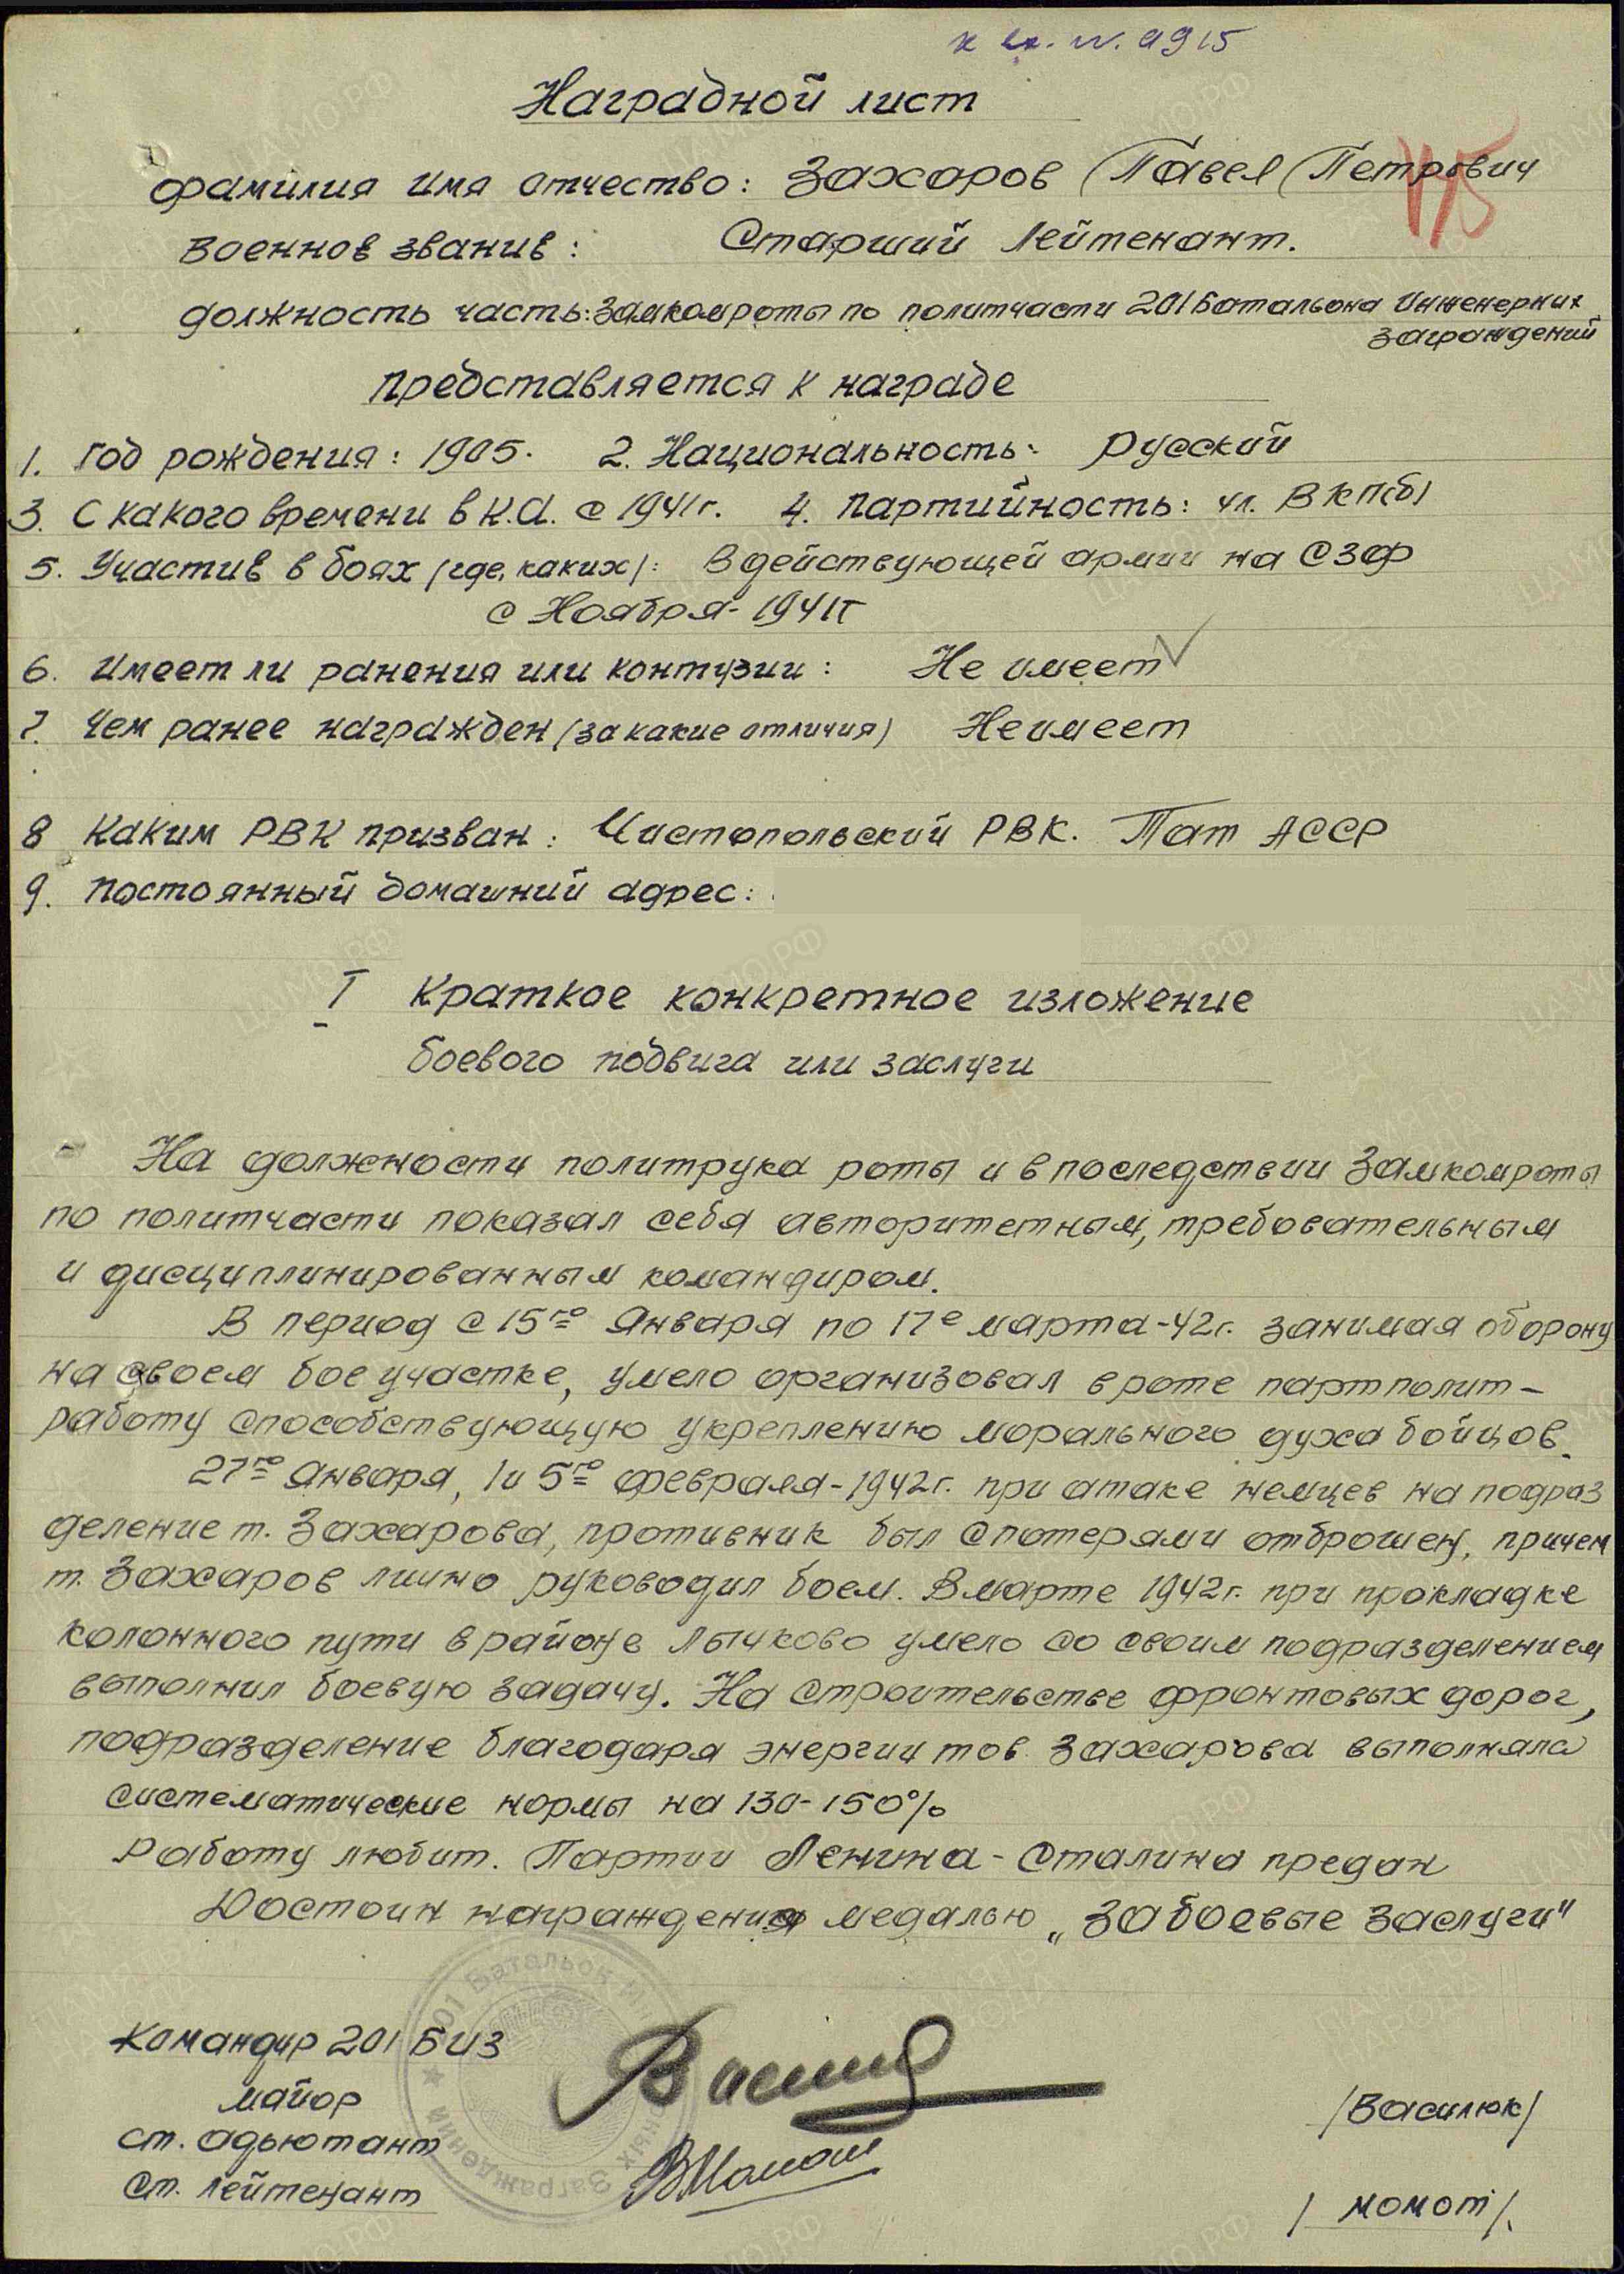 к вх. N. 4915
Наградной лист
115
Фамилия Имя Отчество: Захаров Павел Петрович
Военное звание: Старший Лейтенант.
должность часть: Замкомроты по политчасти 201 Батальона Инженерных
Заграждений
представляется к награде
1. Год рождения: 1905. 2. Национальность: Русский
3. С какого времени в К.А. с 1941г. 4. партийность: чл. ВКП(б)
5. Участие в боях /где, каких/: В действующей армии на СЗФ
с Ноября - 1941г
6. Имеет ли ранения или контузии: Не имеет
7. Чем ранее награжден (за какие отличия) Не имеет
8 Каким РВК призван: Чистопольский РВК. Тат АССР
9. Постоянный домашний адрес:
I Краткое конкретное изложение
боевого подвига или заслуги
На должности политрука роты и впоследствии Замкомроты
по политчасти показал себя авторитетным, требовательным
и дисциплинированным командиром.
В период с 15го Января по 17е марта - 42г. занимая оборону
на своем боеучастке, умело организовал в роте партполит-
работу способствующую укреплению морального духа бойцов.
27го Января, 1 и 5го февраля - 1942г. при атаке немцев на подраз
деление т. Захарова, противник был с потерями отброшен, причем
т. Захаров лично руководил боем. В марте 1942г. при прокладке
колонного пути в районе Лычково умело со своим подразделением
выполнил боевую задачу. На строительстве фронтовых дорог,
подразделение благодаря энергии тов. Захарова выполняло
систематические нормы на 130-150%
Работу любит. Партии Ленина - Сталина предан
Достоин награждения медалью „За боевые заслуги"
Командир 201 БИЗ
майор
/Василюк/
ст. адьютант
Ст. лейтенант
/ Момот /.
201 Батальон Инженерных Заграждений